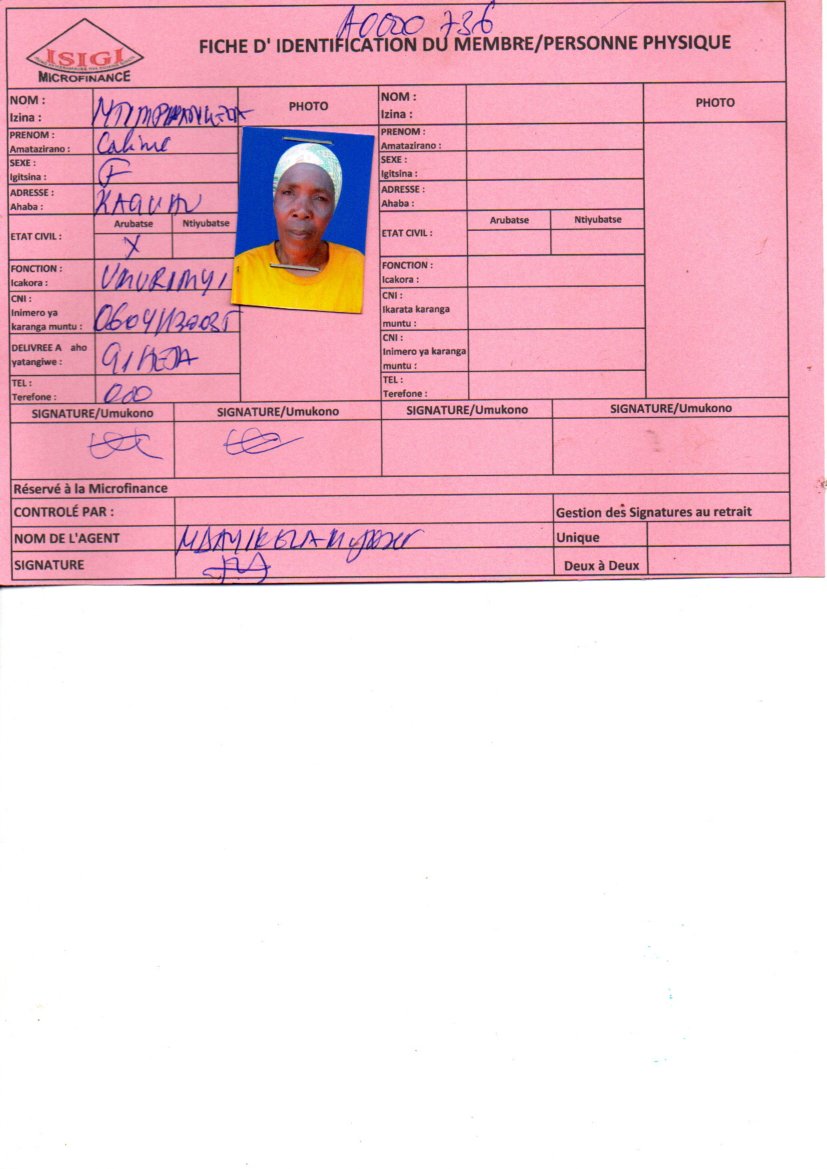 A0000 736
ISIGI
MICROFINANCE
FICHE D' IDENTIFICATION DU MEMBRE/PERSONNE PHYSIQUE
NOM :
Izina :
PHOTO
PRENOM :
Amatazirano :
SEXE : F
Igitsina :
ADRESSE :
Ahaba :
ETAT CIVIL :
Arubatse Ntiyubatse
X
FONCTION : UMURIMYI
Icakora :
CNI :
Inimero ya
karanga muntu :
DELIVREE A aho
yatangiwe :
TEL : 000
Terefone :
SIGNATURE/Umukono SIGNATURE/Umukono
NOM :
Izina :
PHOTO
PRENOM :
Amatazirano :
SEXE :
Igitsina :
ADRESSE :
Ahaba :
ETAT CIVIL :
Arubatse Ntiyubatse
FONCTION :
Icakora :
CNI :
Ikarata karanga
muntu :
CNI :
Inimero ya karanga
muntu :
TEL :
Terefone :
SIGNATURE/Umukono SIGNATURE/Umukono
Réservé à la Microfinance
CONTROLÉ PAR : Gestion des Signatures au retrait
NOM DE L'AGENT Unique
SIGNATURE Deux à Deux